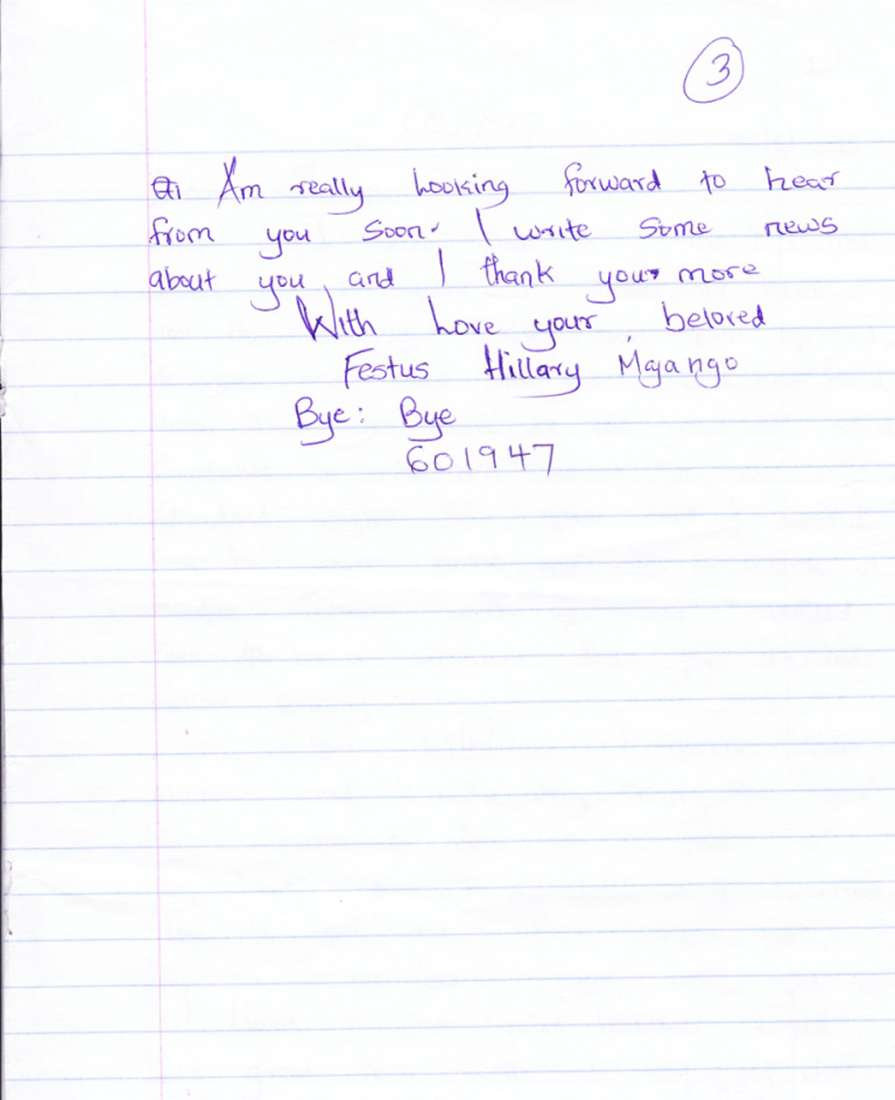 3
Am really Looking forward to hear
from you soon. I write some news
about you, and I thank you more
With Love your beloved
Festus Hillary Mgango
Bye: Bye
601947